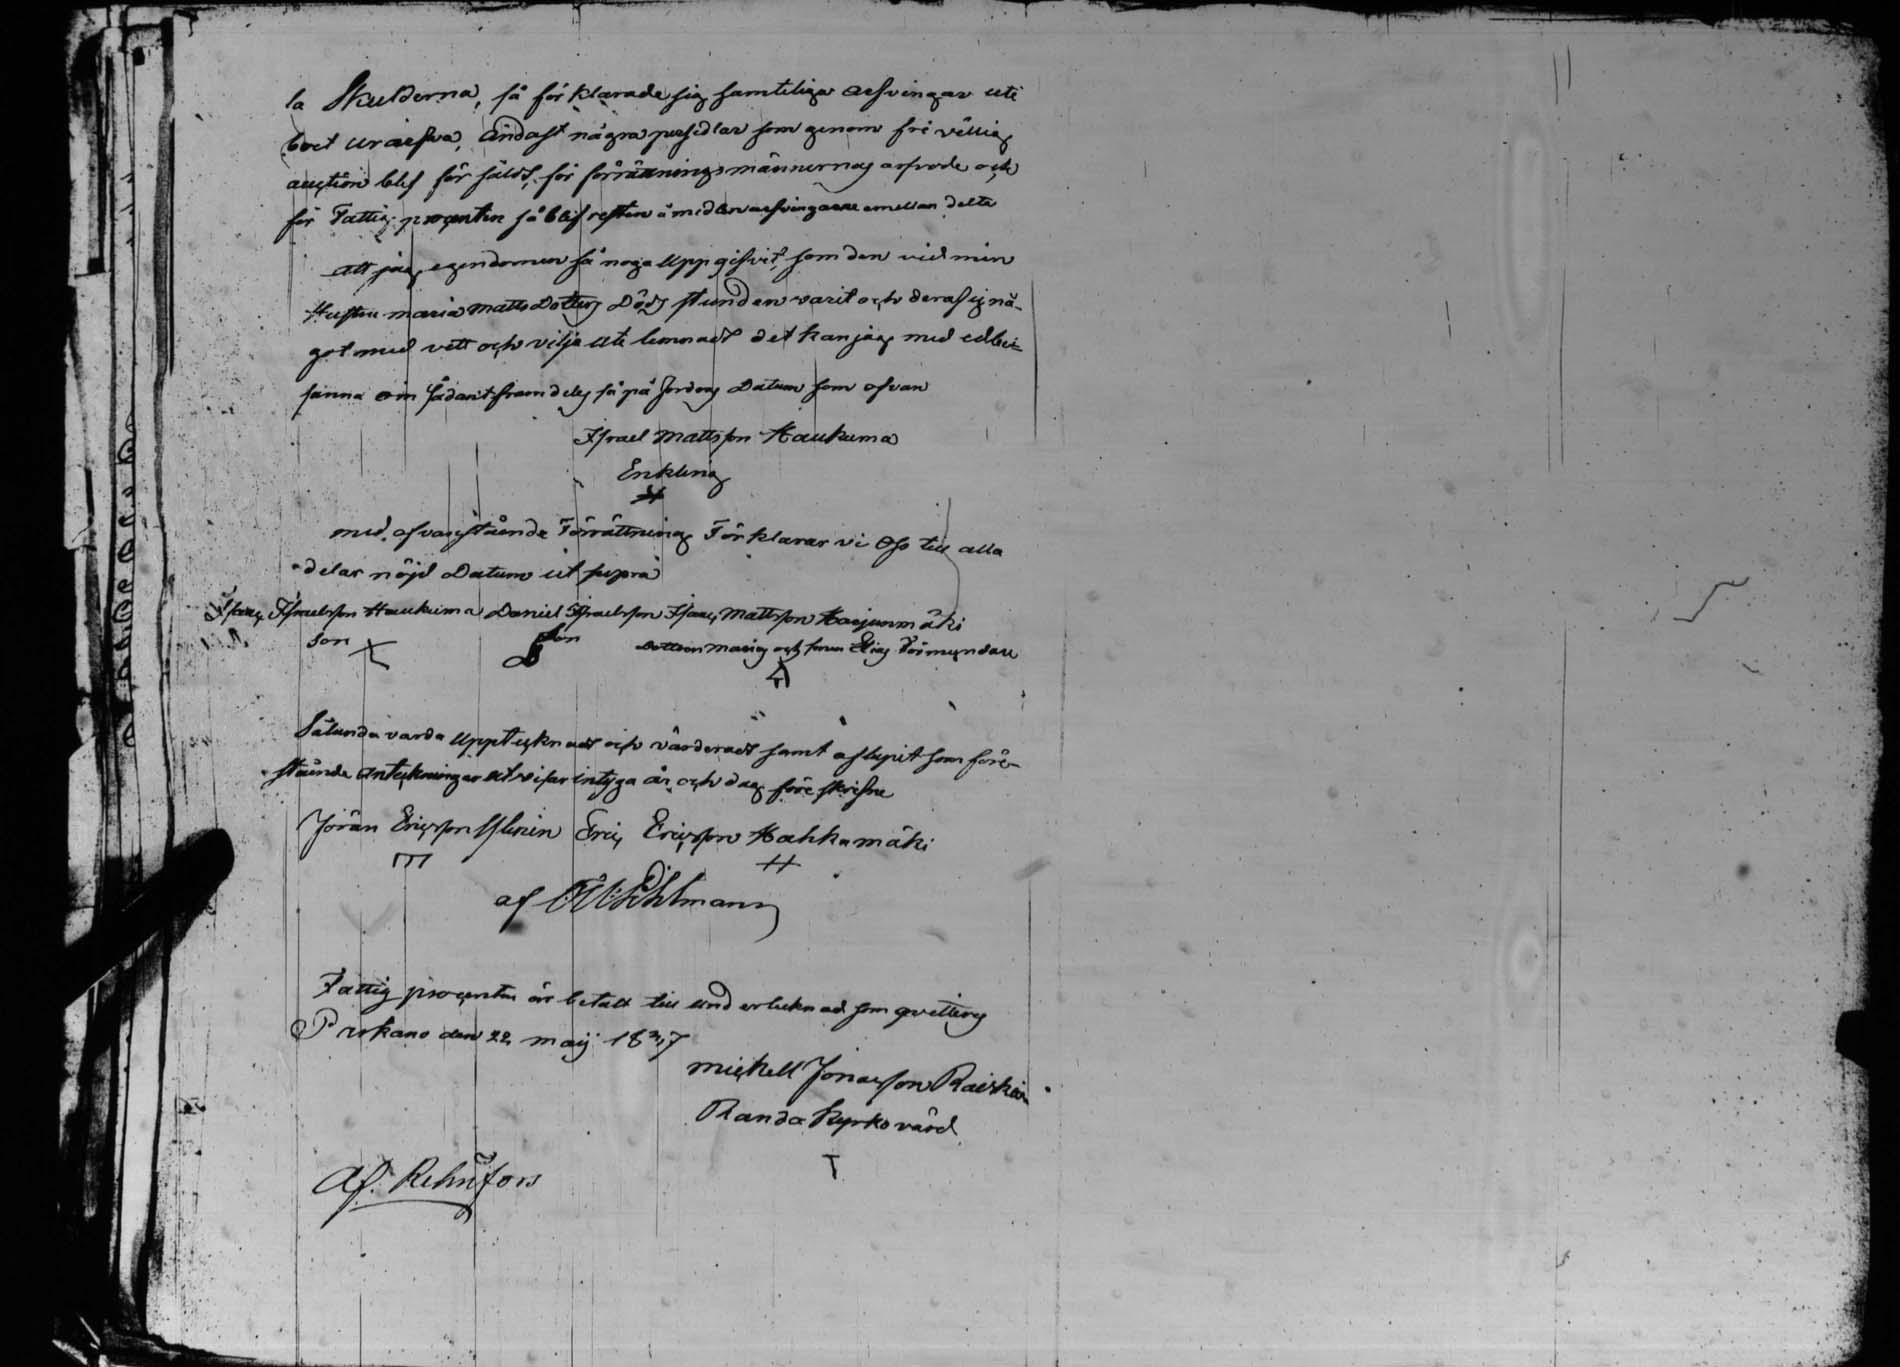 la Skulderna, så förklarade sig samtelige arfvingar uti
boet urarfva, Endast några persedlar som genom frivillig
auction blef för såldt, för förrättningsmännernas arfvode och
för Fattig procenten så blef resten ämedlan arfvingarne emellan delte
Att jag egendomen så noga uppgifvit, som den vid min
Hustru maria Matts Dotters Döds stunden varit och deraf ej nå-
got med vett och vilja ute lemnadt det kan jag med ed be-
sanna om sådant framdeles så på fordras Datum som ofvan
Israel Mattsson Haukuma
Enkling
med ofvanstående Förrättning Förklarar vi Oss till alla
delar nöjd Datum ut supra
Isaac Israelsson Haukuma Daniel Israelsson Isaac Mattsson Harjunmäki
son son Dottren Marias och sonen Elias Förmyndare
Sålunda varda upptecknadt och värderadt samt aflupit som före-
stående anteckningar utvisar intyga år och dag föreskrifne
Jöran Ericsson Eric Ericsson Kahkumäki
af
Fattig procenten är betalt till undertecknad som qvitteras
Parkano den 22 maij 1837
Mickell Jonasson Raiskin
Randa Kyrkovärd
Af. Rehnfors